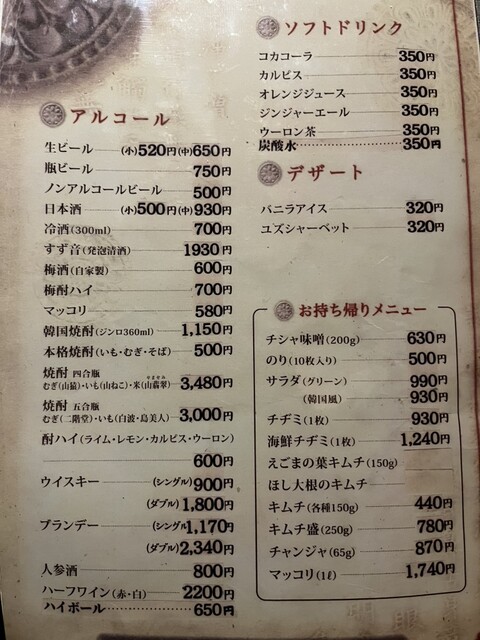 アルコール
生ビール (小)520円(中)650円
瓶ビール 750円
ノンアルコールビール 500円
日本酒 (小)500円(中)930円
冷酒(300ml) 700円
すず音(発泡清酒) 1930円
梅酒(自家製) 600円
梅酎ハイ 700円
マッコリ 580円
韓国焼酎(ジンロ360ml) 1,150円
本格焼酎(いも・むぎ・そば) 500円
焼酎 四合瓶
むぎ(山猿)・いも(山ねこ)・米(山翡翠) 3,480円
焼酎 五合瓶
むぎ(二階堂)・いも(白波・島美人) 3,000円
酎ハイ(ライム・レモン・カルピス・ウーロン)
600円
ウイスキー (シングル)900円
(ダブル)1,800円
ブランデー (シングル)1,170円
(ダブル)2,340円
人参酒 800円
ハーフワイン(赤・白) 2200円
ハイボール 650円
ソフトドリンク
コカコーラ 350円
カルピス 350円
オレンジジュース 350円
ジンジャーエール 350円
ウーロン茶 350円
炭酸水 350円
デザート
バニラアイス 320円
ユズシャーベット 320円
お持ち帰りメニュー
チシャ味噌(200g) 630円
のり(10枚入り) 500円
サラダ(グリーン) 990円
(韓国風) 930円
チヂミ(1枚) 930円
海鮮チヂミ(1枚) 1,240円
えごまの葉キムチ(150g)
ほし大根のキムチ
キムチ(各種150g) 440円
キムチ盛(250g) 780円
チャンジャ(65g) 870円
マッコリ(1ℓ) 1,740円